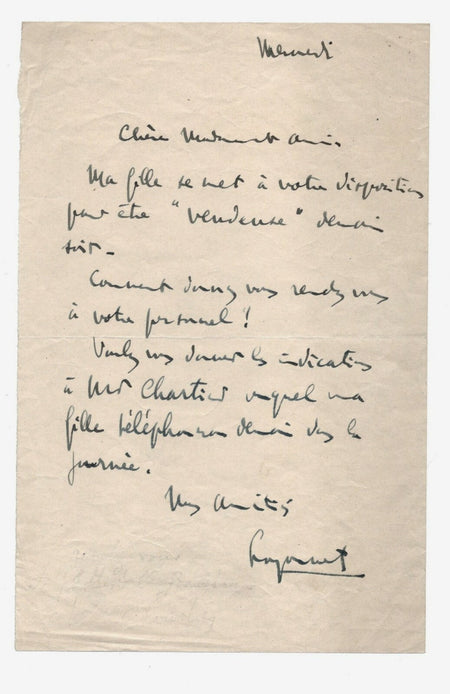 Mercredi
Chère Madame et Amie.
Ma fille se met à votre disposition
pour être "vendeuse" demain
soir –
Comment donnez vous rendez vous
à votre personnel !
Voulez vous donner les indications
à Mr Chartier auquel ma
fille téléphonera demain dans la
journée.
Mes Amitiés